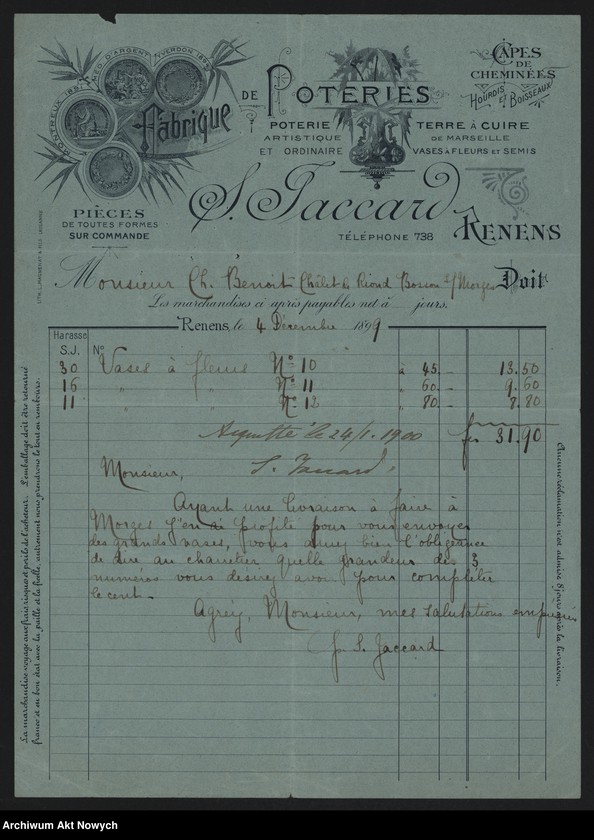 MONTREUX 1891 MED. D'ARGENT YVERDON 1894
Fabrique DE POTERIES
POTERIE
ARTISTIQUE
ET ORDINAIRE
TERRE À CUIRE
DE MARSEILLE
VASES À FLEURS ET SEMIS
CAPES
DE
CHEMINÉES
HOURDIS ET BOISSEAUX
S. Jaccard
RENENS
TÉLÉPHONE 738
PIÈCES
DE TOUTES FORMES
SUR COMMANDE
Monsieur Ch. Benoit Châlet de Riond Bosson s/Morges Doit
Les marchandises ci après payables net à jours.
Renens, le 4 Décembre 1899
Harasse
S.J. N°
30 Vases à fleurs N° 10 à 45.- 13.50
16 " " N° 11 " 60.- 9.60
11 " " N° 12 " 80.- 8.80
frs 31.90
Acquitté le 24/1. 1900
S. Jaccard.
Monsieur,
Ayant une livraison à faire à
Morges j'en ai profité pour vous envoyer
des grands vases, vous aurez bien l'obligeance
de dire au charretier quelle grandeur des 3
numéros vous desirez avoir pour compléter
le cent.-
Agréez, Monsieur, mes salutations empressées
p. S. Jaccard
La marchandise voyage aux frais, risques et perils de l'acheteur. L'emballage doit être retourné
franco et en bon état avec la paille et la ficelle, autrement nous prendrons le tout en rembours.
Aucune réclamation n'est admise 8 jours après la livraison.
Archiwum Akt Nowych